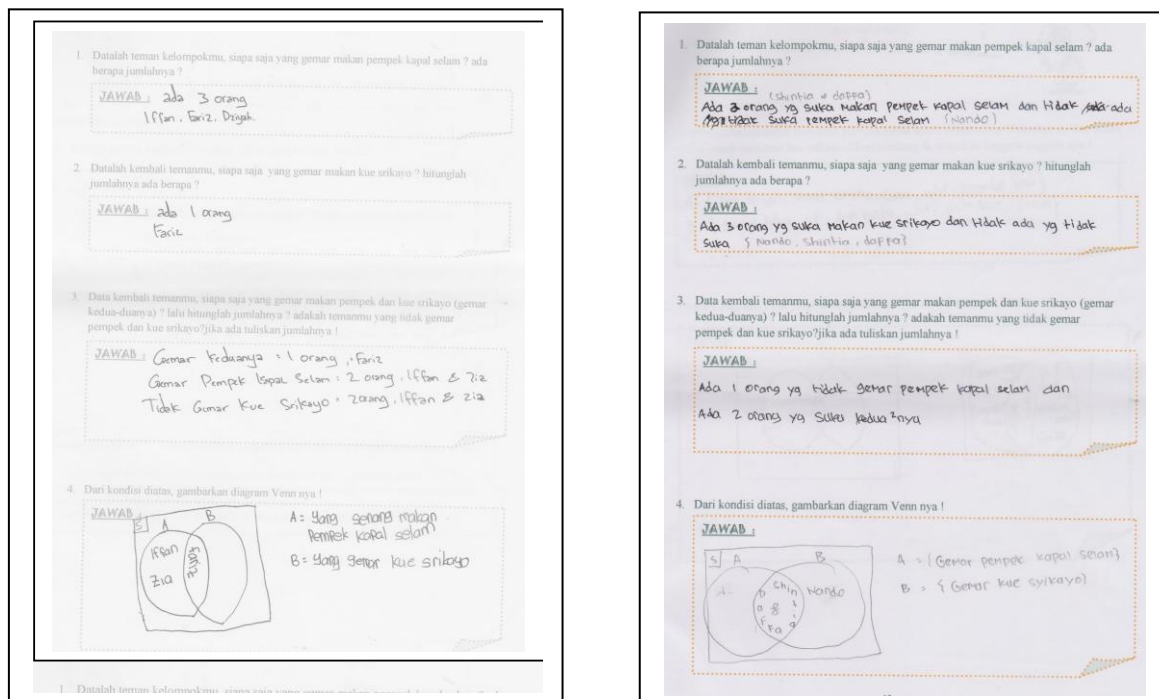 1. Datalah teman kelompokmu, siapa saja yang gemar makan pempek kapal selam ? ada
berapa jumlahnya ?
JAWAB : ada 3 orang
Iffan, Fariz, Dziyah.
2. Datalah kembali temanmu, siapa saja yang gemar makan kue srikayo ? hitunglah
jumlahnya ada berapa ?
JAWAB : ada 1 orang
Fariz
3. Data kembali temanmu, siapa saja yang gemar makan pempek dan kue srikayo (gemar
kedua-duanya) ? lalu hitunglah jumlahnya ? adakah temanmu yang tidak gemar
pempek dan kue srikayo?jika ada tuliskan jumlahnya !
JAWAB : Gemar Keduanya : 1 orang, Fariz
Gemar Pempek Kapal Selam : 2 orang, Iffan & Zia
Tidak Gemar Kue Srikayo : 2 orang, Iffan & Zia
4. Dari kondisi diatas, gambarkan diagram Venn nya !
JAWAB :
S A B
Iffan
Zia
Fariz
A = Yang senang makan
Pempek kapal selam
B = Yang gemar kue srikayo
1. Datalah teman kelompokmu, siapa saja yang gemar makan
1. Datalah teman kelompokmu, siapa saja yang gemar makan pempek kapal selam ? ada
berapa jumlahnya ?
JAWAB :
(shintia & daffa)
Ada orang yg suka makan pempek kapal selam dan tidak ada
tidak suka pempek kapal selam (Nando)
2. Datalah kembali temanmu, siapa saja yang gemar makan kue srikayo ? hitunglah
jumlahnya ada berapa ?
JAWAB :
Ada 3 orang yg suka makan kue srikayo dan tidak ada yg tidak
suka { Nando, shintia, daffa}
3. Data kembali temanmu, siapa saja yang gemar makan pempek dan kue srikayo (gemar
kedua-duanya) ? lalu hitunglah jumlahnya ? adakah temanmu yang tidak gemar
pempek dan kue srikayo?jika ada tuliskan jumlahnya !
JAWAB :
Ada 1 orang yg tidak gemar pempek kapal selam dan
Ada 2 orang yg suka kedua²nya
4. Dari kondisi diatas, gambarkan diagram Venn nya !
JAWAB :
S A B
Shintia
&
Daffa
Nando
A = {Gemar pempek kapal selam}
B = { Gemar kue syikayo}